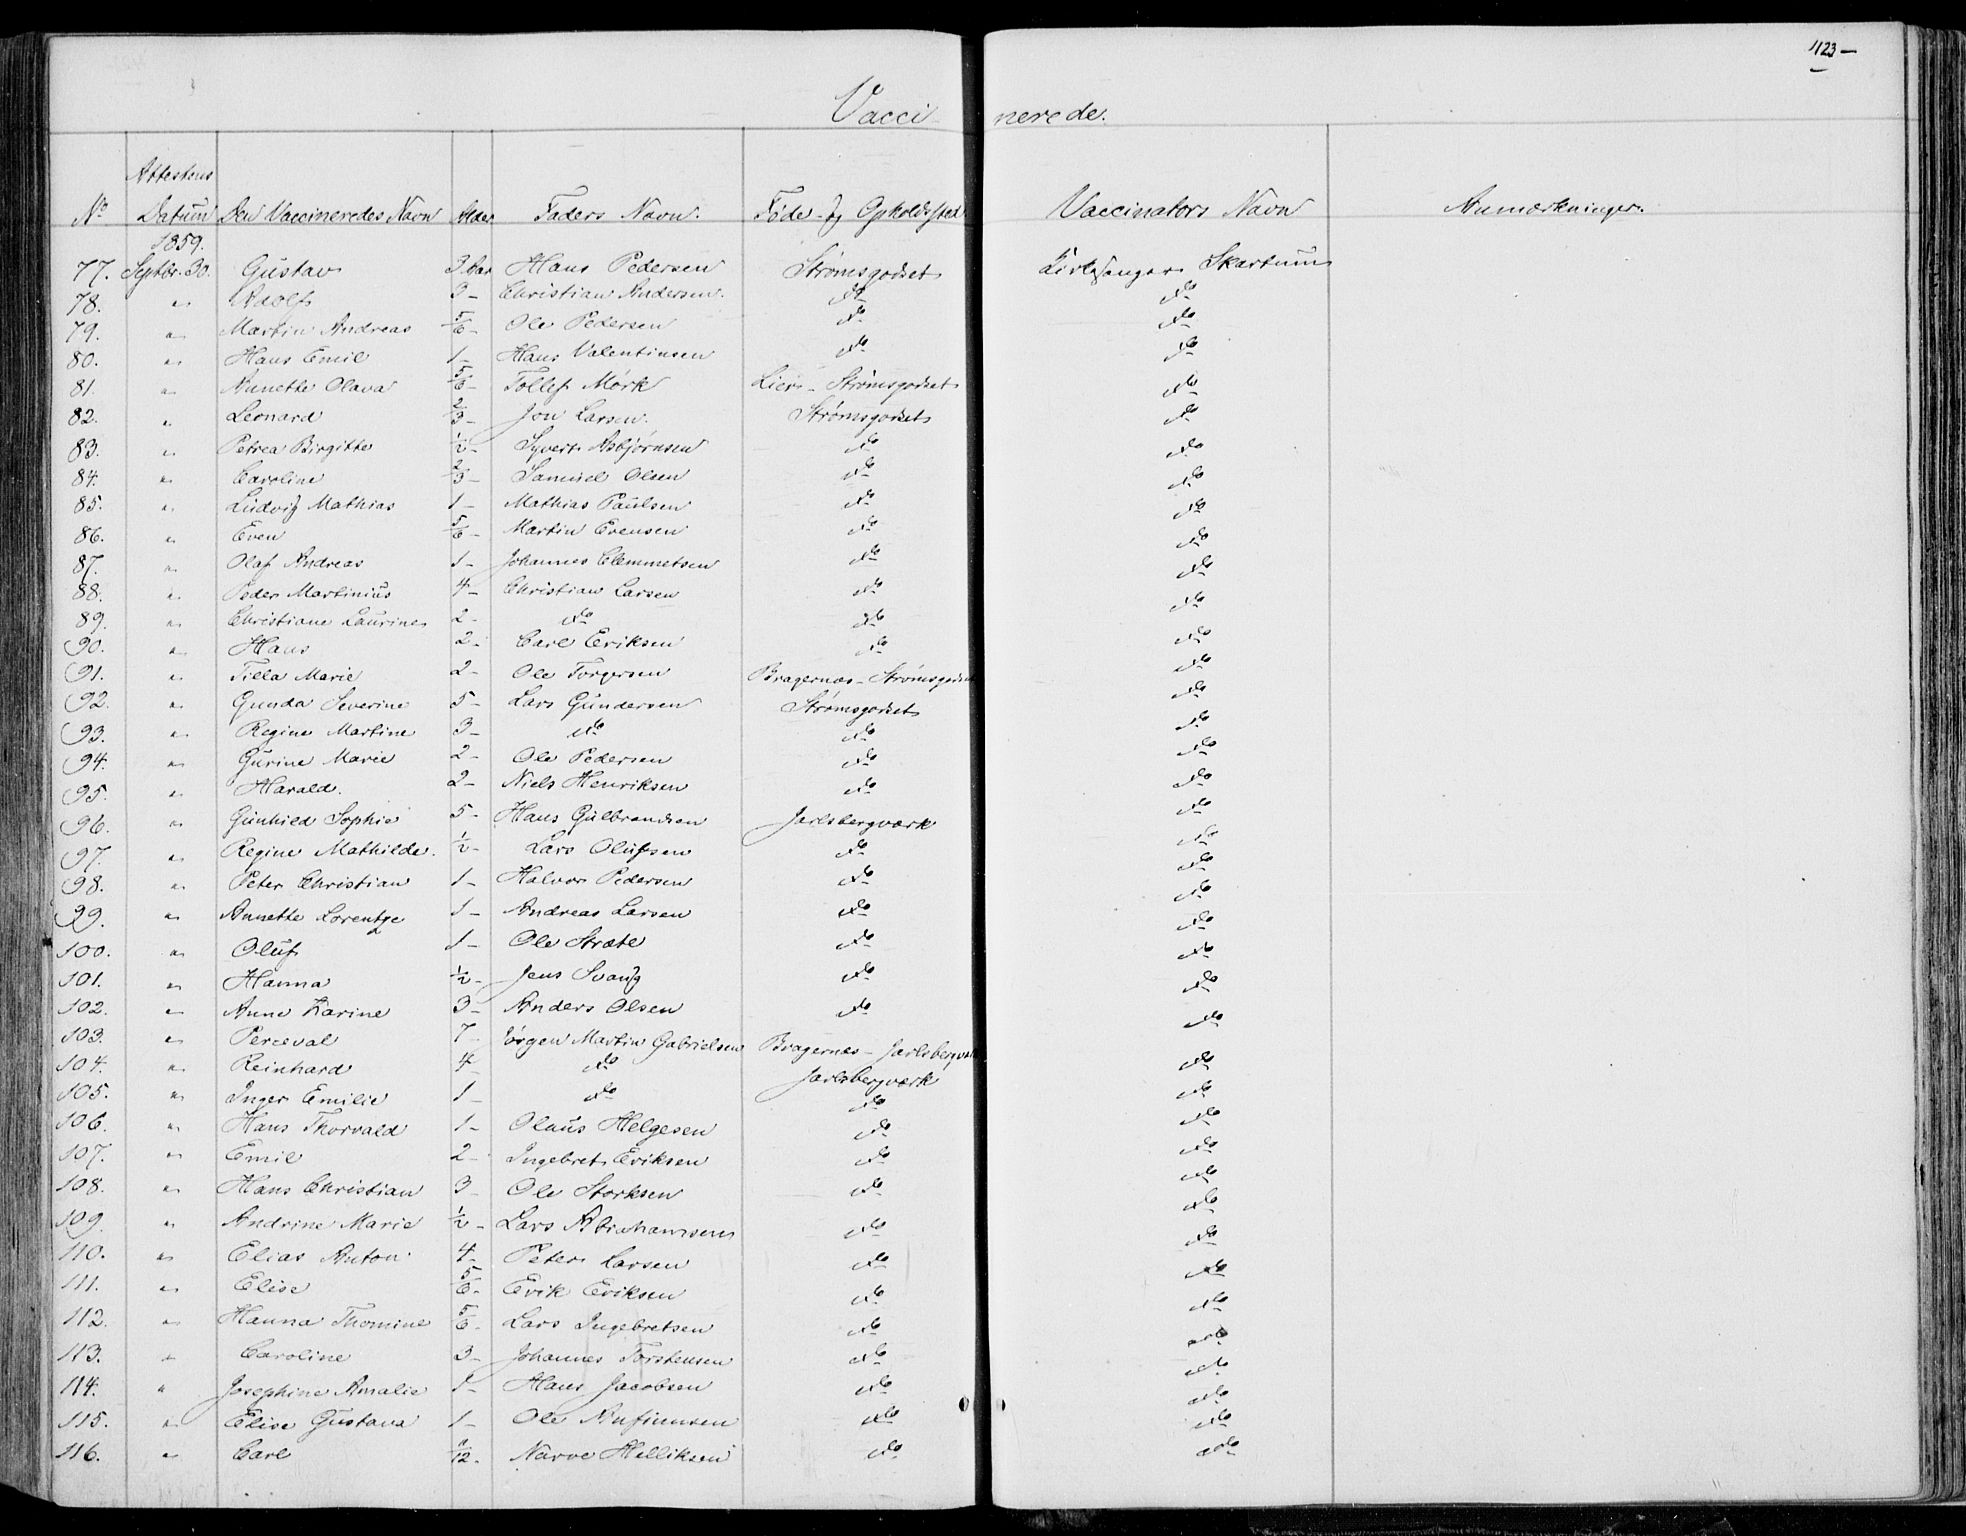 123 –
Vaccinerede.
No | Attestens Datum | Den Vaccineredes Navn | Alder | Faders Navn. | Føde- og Opholdssted | Vaccinators Navn | Anmærkninger.
1859.
77. Septbr. 30. Gustav 3 Aar Hans Pedersen Strømsgodset Kirkesanger Skartum
78. " Adolf 3 – Christian Andersen. do do
79. " Martin Andreas 5/6 – Ole Pedersen do do
80. " Hans Emil 1 – Hans Valentinsen do do
81. " Annette Olava 5/6 – Tollef Mørk Lier – Strømsgodset do
82. " Leonard 2/3 – Jon Larsen. Strømsgodset do
83. " Petrea Birgitte 1/2 – Syvert Asbjørnsen do do
84. " Caroline 2/3 – Samuel Olsen do do
85. " Ludvig Mathias 1 – Mathias Paulsen do do
86. " Even 5/6 – Martin Evensen do do
87. " Olaf Andreas 1 – Johannes Clemmetsen do do
88. " Peder Martinius 4 – Christian Larsen do do
89. " Christiane Laurine 2 – do do do
90. " Hans 2 – Carl Eriksen do do
91. " Tilla Marie 2 – Ole Torgersen Bragernæs – Strømsgodset do
92. " Gunda Severine 5 – Lars Gundersen Strømsgodset do
93. " Regine Martine 3 – do do do
94. " Gurine Marie 2 – Ole Pedersen do do
95. " Harald. 2 – Niels Henriksen do do
96. " Gunhild Sophie 5 – Hans Gulbrandsen Jarlsbergværk do
97. " Regine Mathilde. 1/2 – Lars Olufsen do do
98. " Peter Christian 1 – Halvor Pedersen do do
99. " Annette Lorentze 1 – Andreas Larsen do do
100. " Oluf 1 – Ole Stræte do do
101. " Hanna 1/2 – Jens Svang do do
102. " Anne Karine 3 – Anders Olsen do do
103. " Perceval 7 – Jørgen Martin Gabrielsen Bragernæs – Jarlsbergværk do
104. " Reinhard 4 – do Jarlsbergværk do
105. " Inger Emilie 1 – do do do
106. " Hans Thorvald 1 – Olaus Helgesen do do
107. " Emil 2 – Ingebret Eriksen do do
108. " Hans Christian 3 – Ole Storksen do do
109. " Andrine Marie 1/2 – Lars Abrahamsen do do
110. " Elias Anton 4 – Peter Larsen do do
111. " Elise 5/6 – Erik Eriksen do do
112. " Hanna Thomine 5/6 – Lars Ingebretsen do do
113. " Caroline 3 – Johannes Torstensen do do
114. " Josephine Amalie 1 – Hans Jacobsen do do
115. " Elise Gustava 1 – Ole Anfinnsen do do
116. " Carl 11/12 – Narve Helliksen do do